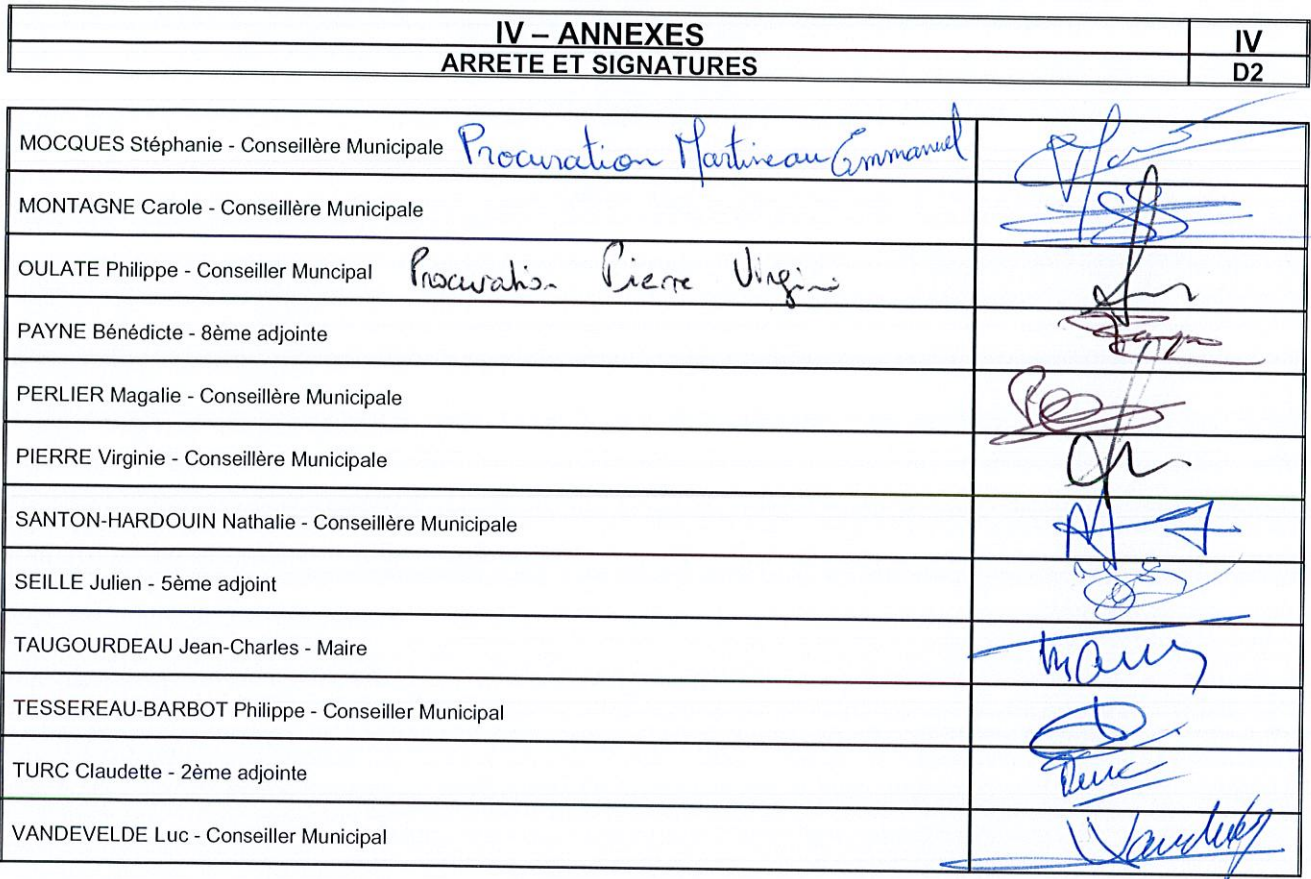 IV – ANNEXES
IV
ARRETE ET SIGNATURES
D2
MOCQUES Stéphanie - Conseillère Municipale Procuration Martineau Emmanuel
MONTAGNE Carole - Conseillère Municipale
OULATE Philippe - Conseiller Muncipal Procuration Pierre Virginie
PAYNE Bénédicte - 8ème adjointe
PERLIER Magalie - Conseillère Municipale
PIERRE Virginie - Conseillère Municipale
SANTON-HARDOUIN Nathalie - Conseillère Municipale
SEILLE Julien - 5ème adjoint
TAUGOURDEAU Jean-Charles - Maire
TESSEREAU-BARBOT Philippe - Conseiller Municipal
TURC Claudette - 2ème adjointe
VANDEVELDE Luc - Conseiller Municipal